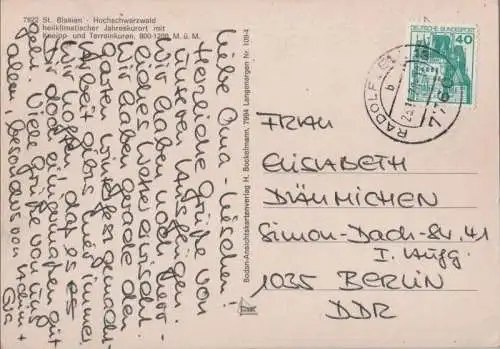 7822 St. Blasien · Hochschwarzwald
heilklimatischer Jahreskurort mit
Kneipp- und Terrainkuren, 800-1200 M. ü. M.
Liebe Oma-Lieschen!
Herzliche Grüße von
unseren Ausflügen.
Wir haben noch herr-
liches Wetter erwischt.
Wir haben gerade den
Garten winterfest gemacht.
Arbeit gibts hier immer.
Wir hoffen, daß es
Dir den gut
geht. Viele Grüße von uns
allen, besonders von +
Bodan-Ansichtskartenverlag H. Bockelmann, 7994 Langenargen Nr. 109-4
DEUTSCHE BUNDESPOST
40
RADOLFZELL
b
FRAU
ELISABETH
DÄUMICHEN
Simon-Dach-Str. 41
I. Aufg.
1035 BERLIN
DDR